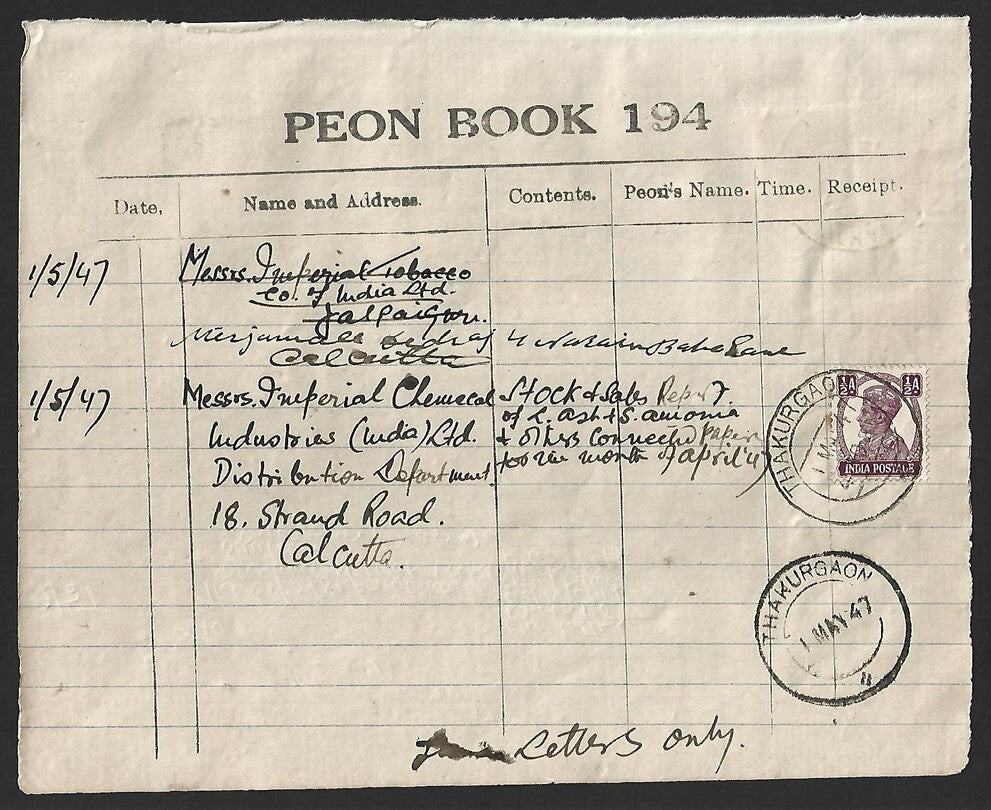 PEON BOOK 194
Date, Name and Address. Contents. Peon's Name. Time. Receipt.
1/5/47 Messrs. Imperial Tobacco
Co. of India Ltd.
Jalpaiguri.
4 Narain Babu Lane
Calcutta
1/5/47 Messrs. Imperial Chemecal
Industries (India) Ltd.
Distribution Department.
18. Strand Road.
Calcutta.
Stock & Sales Report.
of S. Ash & S. amonia
& others connected papers
for the month of april'47
½A ½A
INDIA POSTAGE
THAKURGAON
1 MAY 47
THAKURGAON
1 MAY 47
Letters only.